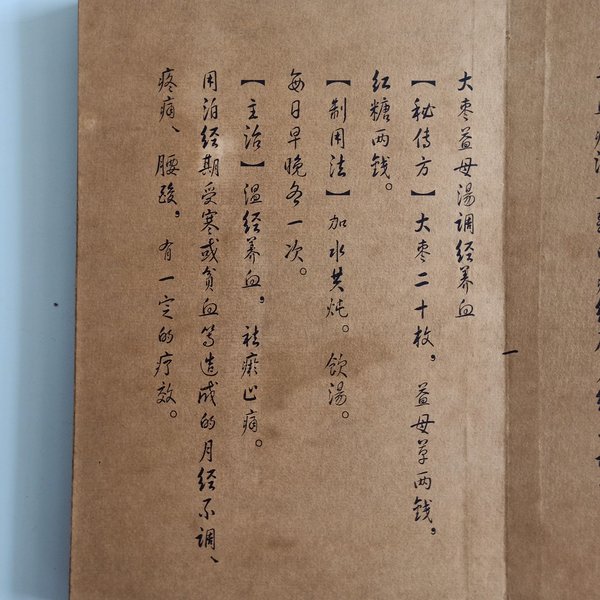 大枣益母湯調经养血
【秘传方】大枣二十枚，益母草两钱，
红糖两钱。
【制用法】加水共炖。飲湯。
每日早晚各一次。
【主治】温经养血，祛瘀止痛。
用治经期受寒或貧血等造成的月经不調、
疼痛、腰酸，有一定的疗效。
一